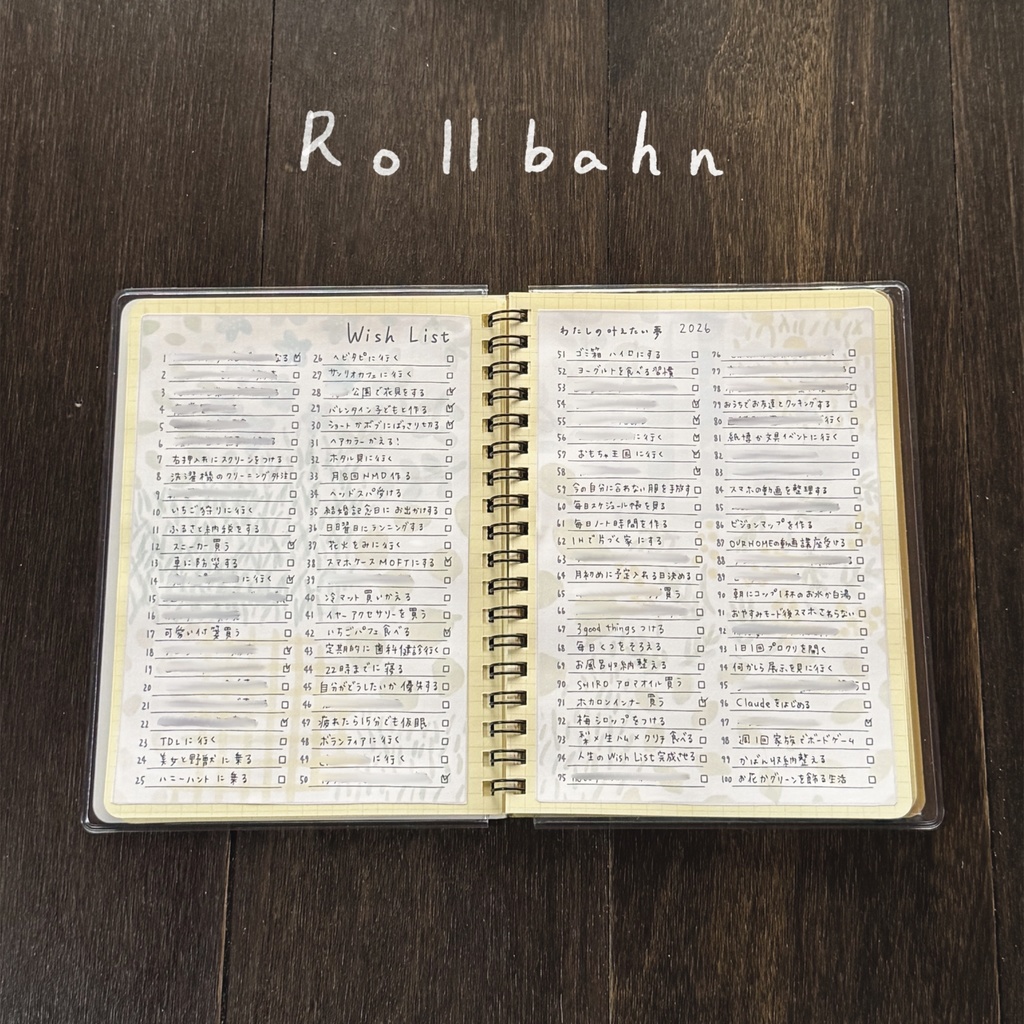 Rollbahn
Wish List
1 なる
2
3
4
5
6
7 右押入れにスクリーンをつける
8 洗濯機のクリーニング外注
9
10 いちご狩りに行く
11 ふるさと納税をする
12 スニーカー買う
13 車に防災する
14 に行く
15
16
17 可愛い付箋買う
18
19
20
21
22
23 TDLに行く
24 美女と野獣に乗る
25 ハニーハントに乗る
26 へビタピに行く
27 サンリオカフェに行く
28 公園で花見をする
29 バレンタイン子どもと作る
30 ショートかボブにばっさり切る
31 ヘアカラーかえる!
32 ホタル見に行く
33 月8回NMD作る
34 ヘッドスパ受ける
35 結婚記念日にお出かけする
36 日曜日にランニングする
37 花火をみに行く
38 スマホケースMOFTにする
39
40 冷マット買いかえる
41 イヤーアクセサリーを買う
42 いちごパフェ食べる
43 定期的に歯科健診行く
44 22時までに寝る
45 自分がどうしたいか優先する
46
47 疲れたら15分でも仮眠
48 ボランティアに行く
49 に行く
50
わたしの叶えたい夢 2026
51 ゴミ箱ハイロにする
52 ヨーグルトを食べる習慣
53
54
55
56 に行く
57 おもちゃ王国に行く
58
59 今の自分に合わない服を手放す
60 毎日スケジュール帳を見る
61 毎日ノート時間を作る
62 1Hで片づく家にする
63
64 月初めに予定入れる日決める
65 買う
66
67 3good thingsつける
68 毎日くつをそろえる
69 お風呂収納整える
70 SHIRO アロマオイル買う
71 ホカロンインナー買う
72 梅シロップをつける
73 梨×生ハム×クリチ食べる
74 人生のWish List完成させる
75
76
77
78
79 おうちでお友達とクッキングする
80 行く
81 紙博か文具イベントに行く
82
83
84 スマホの動画を整理する
85
86 ビジョンマップを作る
87 OURHOMEの動画講座受ける
88
89
90 朝にコップ1杯のお水か白湯
91 おやすみモード後スマホさわらない
92
93 1日1回プロクリを開く
94 何かしら展示を見に行く
95
96 Claudeをはじめる
97
98 週1回家族でボードゲーム
99 かばん収納整える
100 お花かグリーンを飾る生活